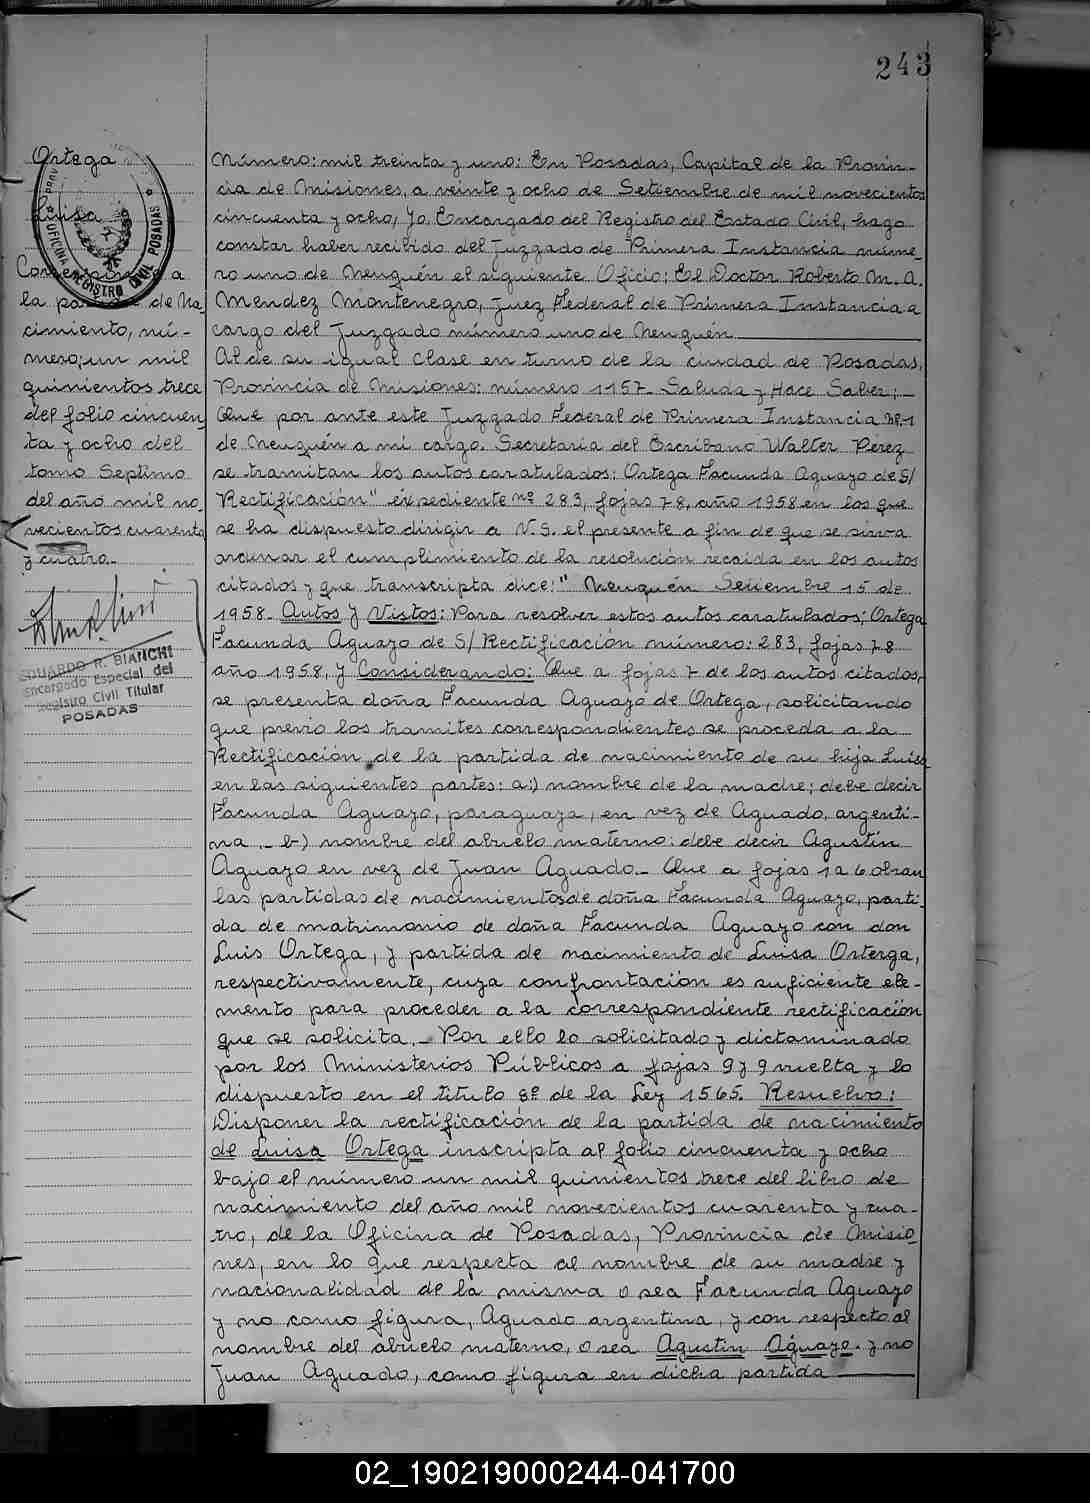 243
Ortega
Luisa
Corresponde a
la partida de Na-
cimiento, nú-
mero; un mil
quinientos trece
del folio cincuen
ta y ocho del
tomo Septimo
del año mil no-
vecientos cuarenta
y cuatro.-
OFICINA REGISTRO CIVIL POSADAS
EDUARDO R. BIANCHI
Encargado Especial del
Registro Civil Titular
POSADAS
Número: mil treinta y uno: En Posadas, Capital de la Provin-
cia de Misiones, a veinte y ocho de Setiembre de mil novecientos
cincuenta y ocho, Yo, Encargado del Registro del Estado Civil, hago
constar haber recibido del Juzgado de Primera Instancia núme-
ro uno de Neuquén el siguiente Oficio: El Doctor Roberto M. A.
Mendez Montenegro, Juez Federal de Primera Instancia a
cargo del Juzgado número uno de Neuquén
Al de su igual clase en turno de la ciudad de Posadas,
Provincia de Misiones: número 1157- Saluda y Hace Saber;-
Que por ante este Juzgado Federal de Primera Instancia Nº-1
de Neuquén a mi cargo. Secretaria del Escribano Walter Pérez
se tramitan los autos caratulados: Ortega Facunda Aguayo de S/
Rectificación" expediente nº 283, fojas 78, año 1958 en los que
se ha dispuesto dirigir a V.S. el presente a fin de que se sirva
ordenar el cumplimiento de la resolución recaida en los autos
citados y que transcripta dice:" Neuquén Setiembre 15 de
1958. Autos y Vistos: Para resolver estos autos caratulados; Ortega
Facunda Aguayo de S/Rectificación número: 283, fojas 78
año 1958, y Considerando: Que a fojas 7 de los autos citados,
se presenta doña Facunda Aguayo de Ortega, solicitando
que previo los tramites correspondientes se proceda a la
Rectificación de la partida de nacimiento de su hija Luisa
en las siguientes partes: a:) nombre de la madre; debe decir
Facunda Aguayo, paraguaya, en vez de Aguado, argenti-
na.- b) nombre del abuelo materno: debe decir Agustín
Aguayo en vez de Juan Aguado.- Que a fojas 1 a 6 obran
las partidas de nacimientos de doña Facunda Aguayo, parti-
da de matrimonio de doña Facunda Aguayo con don
Luis Ortega, y partida de nacimiento de Luisa Orterga,
respectivamente, cuya confrontación es suficiente ele-
mento para proceder a la correspondiente rectificación
que se solicita.- Por ello lo solicitado y dictaminado
por los Ministerios Públicos a fojas 9 y 9 vuelta y lo
dispuesto en el titulo 8º de la Ley 1565. Resuelvo:
Disponer la rectificación de la partida de nacimiento
de Luisa Ortega inscripta al folio cincuenta y ocho
bajo el número un mil quinientos trece del libro de
nacimiento del año mil novecientos cuarenta y cua-
tro, de la Oficina de Posadas, Provincia de Misio-
nes, en lo que respecta al nombre de su madre y
nacionalidad de la misma o sea Facunda Aguayo
y no como figura, Aguado argentina, y con respecto al
nombre del abuelo materno, o sea Agustín Aguayo. y no
Juan Aguado, como figura en dicha partida
02_190219000244-041700